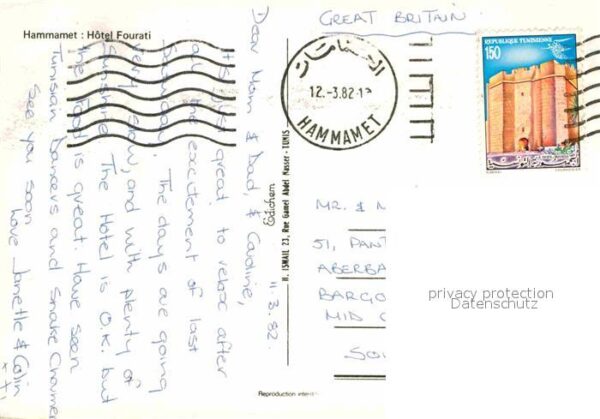 Hammamet : Hôtel Fourati
11.3.82.
Dear Mom & Dad, & Caroline,
It's just great to relax after
all the excitement of last
Saturday. The days are going
very slow, and with plenty of
sunshine. The Hotel is O.K. but
the food is great. Have seen
Tunisian Dancers and Snake Charmer
See you soon
love Janette & Colin
x +1
Edichem
H. ISMAIL 23, Rue Gamal Abdel Nasser - TUNIS
Reproduction inter
GREAT BRITAIN
الحمامات
12.-3.82-1
HAMMAMET
REPUBLIQUE TUNISIENNE
150
الجمهورية التونسية
MR. & M
51, PAN
ABERBA
BARGO
MID G
SO
privacy protection
Datenschutz